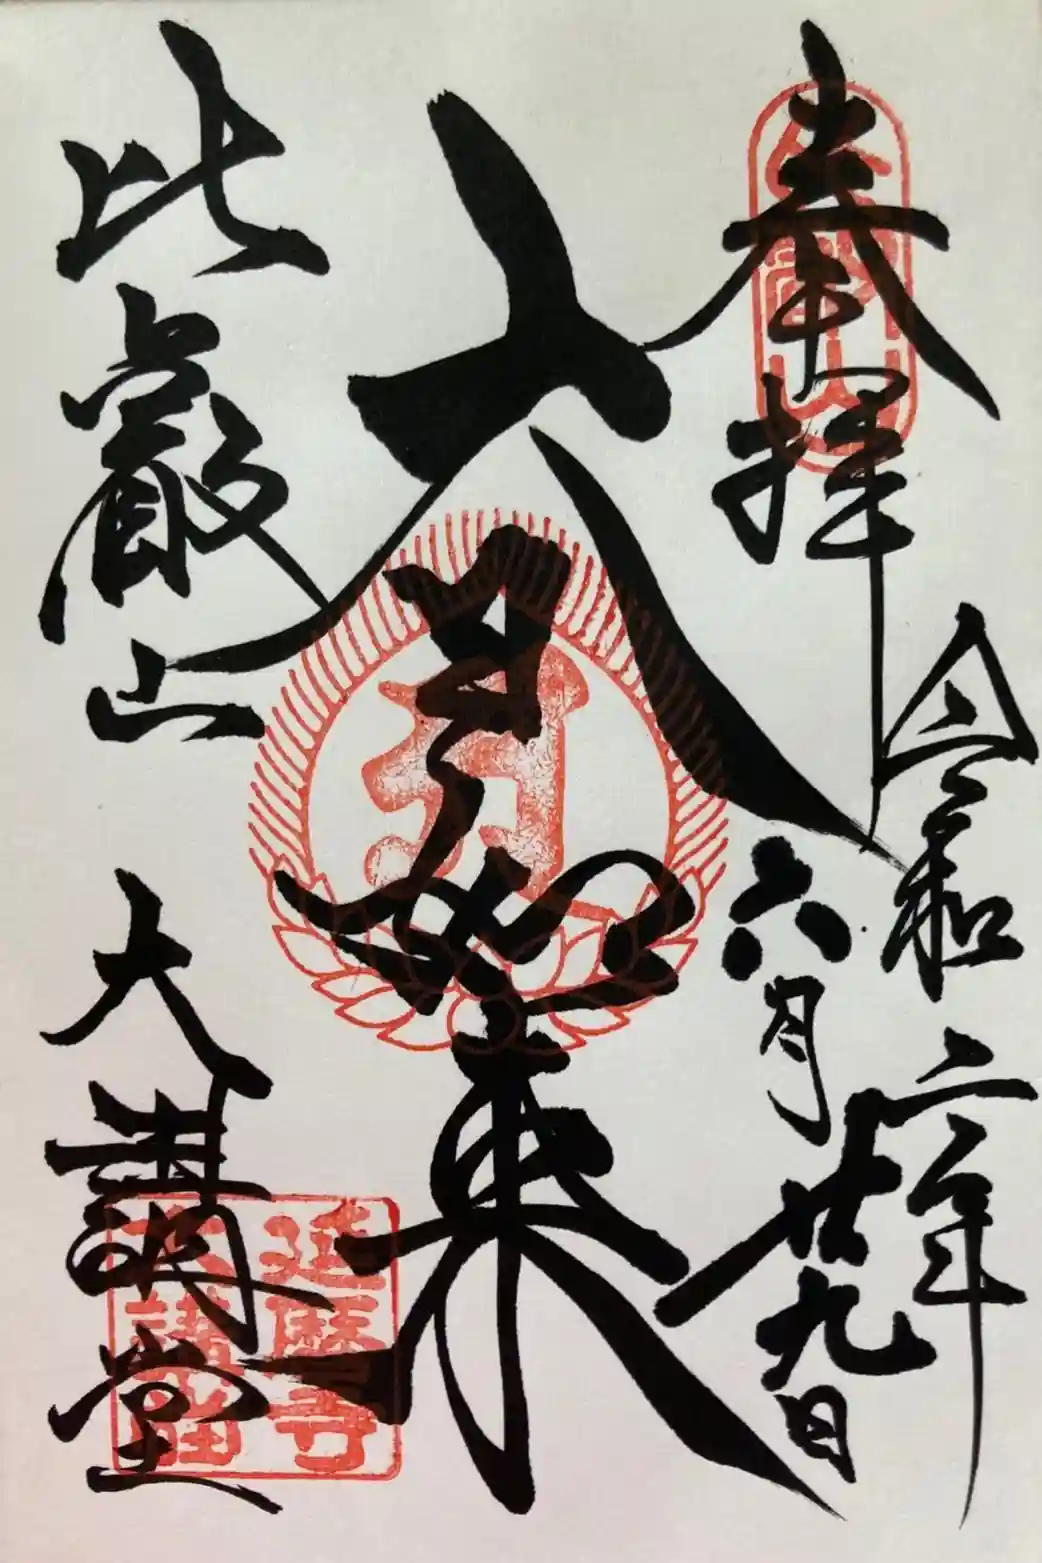 奉拝
令和二年
六月廿九日
大日如来
比叡山
大講堂
比叡山
延暦寺
大講堂